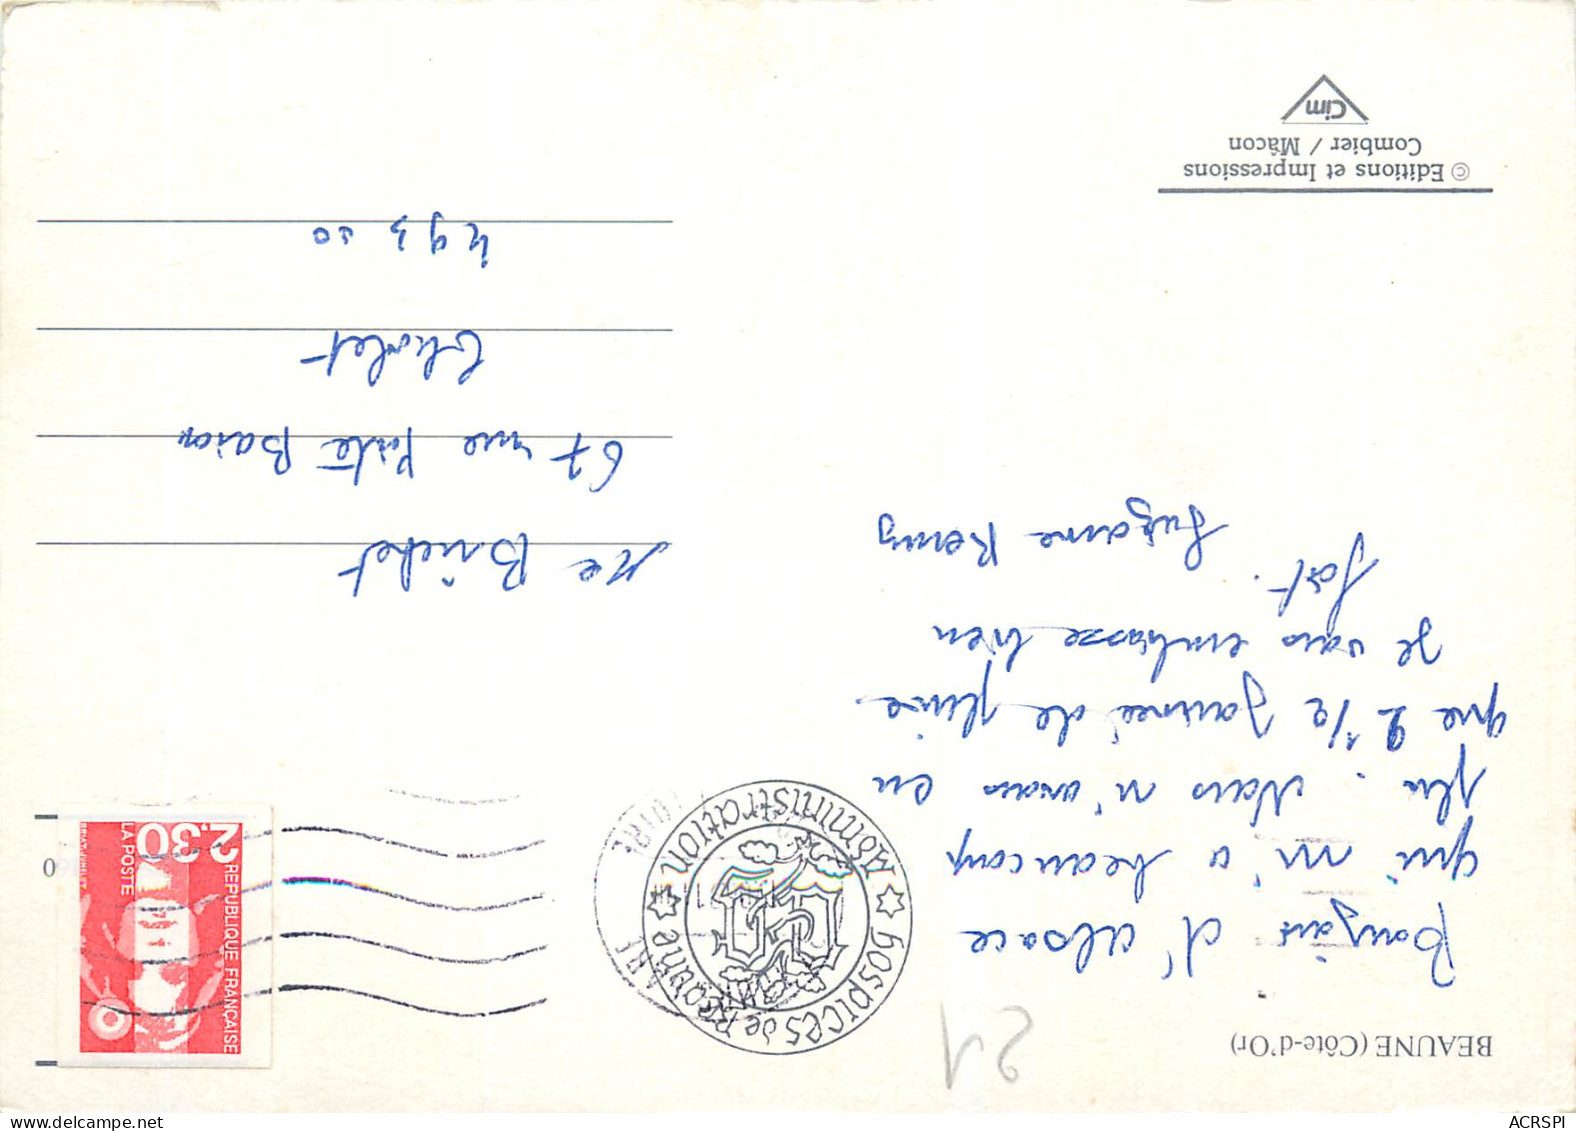 BEAUNE (Côte-d'Or)
21
Bonjour d'Alsace
qui m'a beaucoup
plu. Nous n'avons eu
que 2 1/2 journée de pluie.
Je vous embrasse bien
fort.
Suzanne Remy
© Editions et Impressions
Combier / Mâcon
Cim
REPUBLIQUE FRANÇAISE
2,30
LA POSTE
hospices de Beaune
Administration
Me Brichet
67 rue Porte Baron
Cholet
49300
ACRSPI